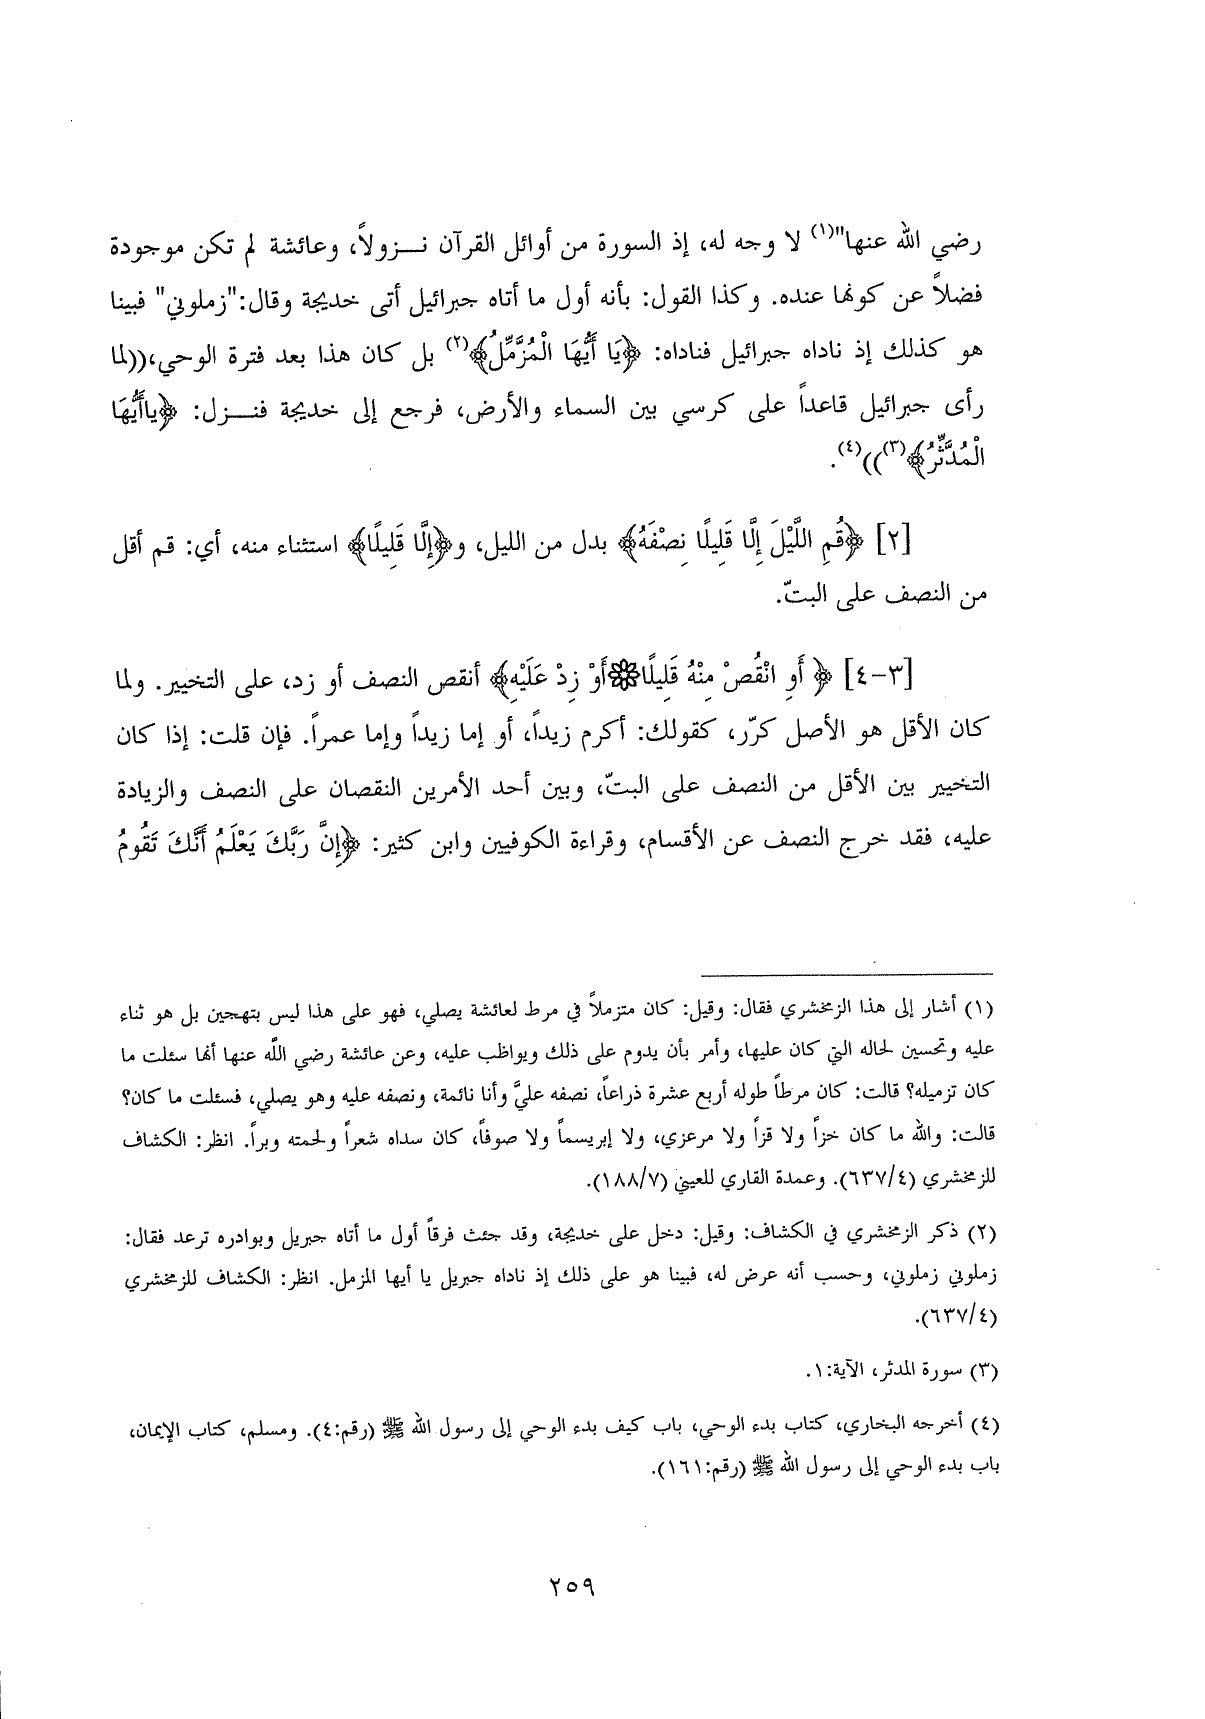 رضي الله عنها"(١) لا وجه له، إذ السورة من أوائل القرآن نـــزولاً، وعائشة لم تكن موجودة
فضلاً عن كونها عنده. وكذا القول: بأنه أول ما أتاه جبرائيل أتى خديجة وقال:"زملوني" فبينا
هو كذلك إذ ناداه جبرائيل فناداه: ﴿يَا أَيُّهَا الْمُزَّمِّلُ﴾(٢) بل كان هذا بعد فترة الوحي،((لما
رأى جبرائيل قاعداً على كرسي بين السماء والأرض، فرجع إلى خديجة فنـــزل: ﴿ياأَيُّهَا
الْمُدَّثِّرُ﴾(٣)))(٤).
[٢] ﴿قُمِ اللَّيْلَ إِلَّا قَلِيلًا نِصْفَهُ﴾ بدل من الليل، و﴿إِلَّا قَلِيلًا﴾ استثناء منه، أي: قم أقل
من النصف على البتّ.
[٣-٤] ﴿ أَوِ انْقُصْ مِنْهُ قَلِيلًا۞أَوْ زِدْ عَلَيْهِ﴾ أنقص النصف أو زد، على التخيير. ولما
كان الأقل هو الأصل كرّر، كقولك: أكرم زيداً، أو إما زيداً وإما عمراً. فإن قلت: إذا كان
التخيير بين الأقل من النصف على البتّ، وبين أحد الأمرين النقصان على النصف والزيادة
عليه، فقد خرج النصف عن الأقسام، وقراءة الكوفيين وابن كثير: ﴿إِنَّ رَبَّكَ يَعْلَمُ أَنَّكَ تَقُومُ
(١) أشار إلى هذا الزمخشري فقال: وقيل: كان متزملاً في مرط لعائشة يصلي، فهو على هذا ليس بتهجين بل هو ثناء
عليه وتحسين لحاله التي كان عليها، وأمر بأن يدوم على ذلك ويواظب عليه، وعن عائشة رضي اللَّه عنها أنها سئلت ما
كان تزميله؟ قالت: كان مرطاً طوله أربع عشرة ذراعاً، نصفه عليَّ وأنا نائمة، ونصفه عليه وهو يصلي، فسئلت ما كان؟
قالت: والله ما كان خزاً ولا قزاً ولا مرعزي، ولا إبريسماً ولا صوفاً، كان سداه شعراً ولحمته وبراً. انظر: الكشاف
للزمخشري (٦٣٧/٤). وعمدة القاري للعيني (١٨٨/٧).
(٢) ذكر الزمخشري في الكشاف: وقيل: دخل على خديجة، وقد جئث فرقاً أول ما أتاه جبريل وبوادره ترعد فقال:
زملوني زملوني، وحسب أنه عرض له، فبينا هو على ذلك إذ ناداه جبريل يا أيها المزمل. انظر: الكشاف للزمخشري
(٦٣٧/٤).
(٣) سورة المدثر، الآية:١.
(٤) أخرجه البخاري، كتاب بدء الوحي، باب كيف بدء الوحي إلى رسول الله ﷺ (رقم:٤). ومسلم، كتاب الإيمان،
باب بدء الوحي إلى رسول الله ﷺ (رقم:١٦١).
٢٥٩